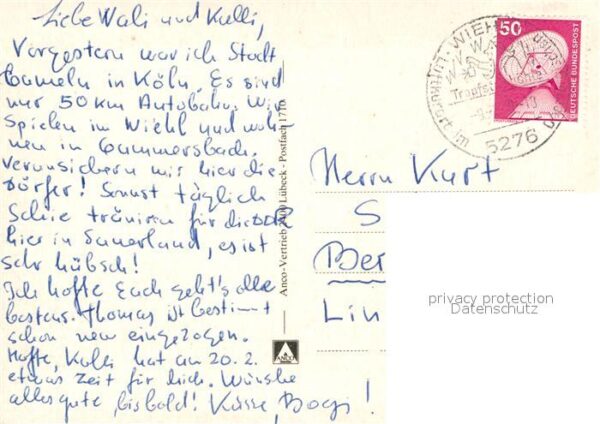 Liebe Wali und Kulli,
Vorgestern war ich Stadt
bummeln in Köln. Es sind
nur 50 km Autobahn. Wir
spielen in Wiehl und woh-
nen in Gummersbach.
Verunsichern wir hier die
Dörfer! Sonst täglich
Schie träniren für die DDR
hier in Sauerland, es ist
sehr hübsch!
Ich hoffe Euch geht's alle
bestens. Thomas ist bestimmt
schon neu eingezogen.
Hoffe, Kulli hat am 20.2.
etwas Zeit für dich. Wünsche
alles gute, bis bald! Küsse,
Anco-Vertrieb 2400 Lübeck - Postfach 1710
ANCO
WIEHL
Luftkurort im
5276
50
DEUTSCHE BUNDESPOST
Herrn Kurt
S
Ber
Lin
privacy protection
Datenschutz